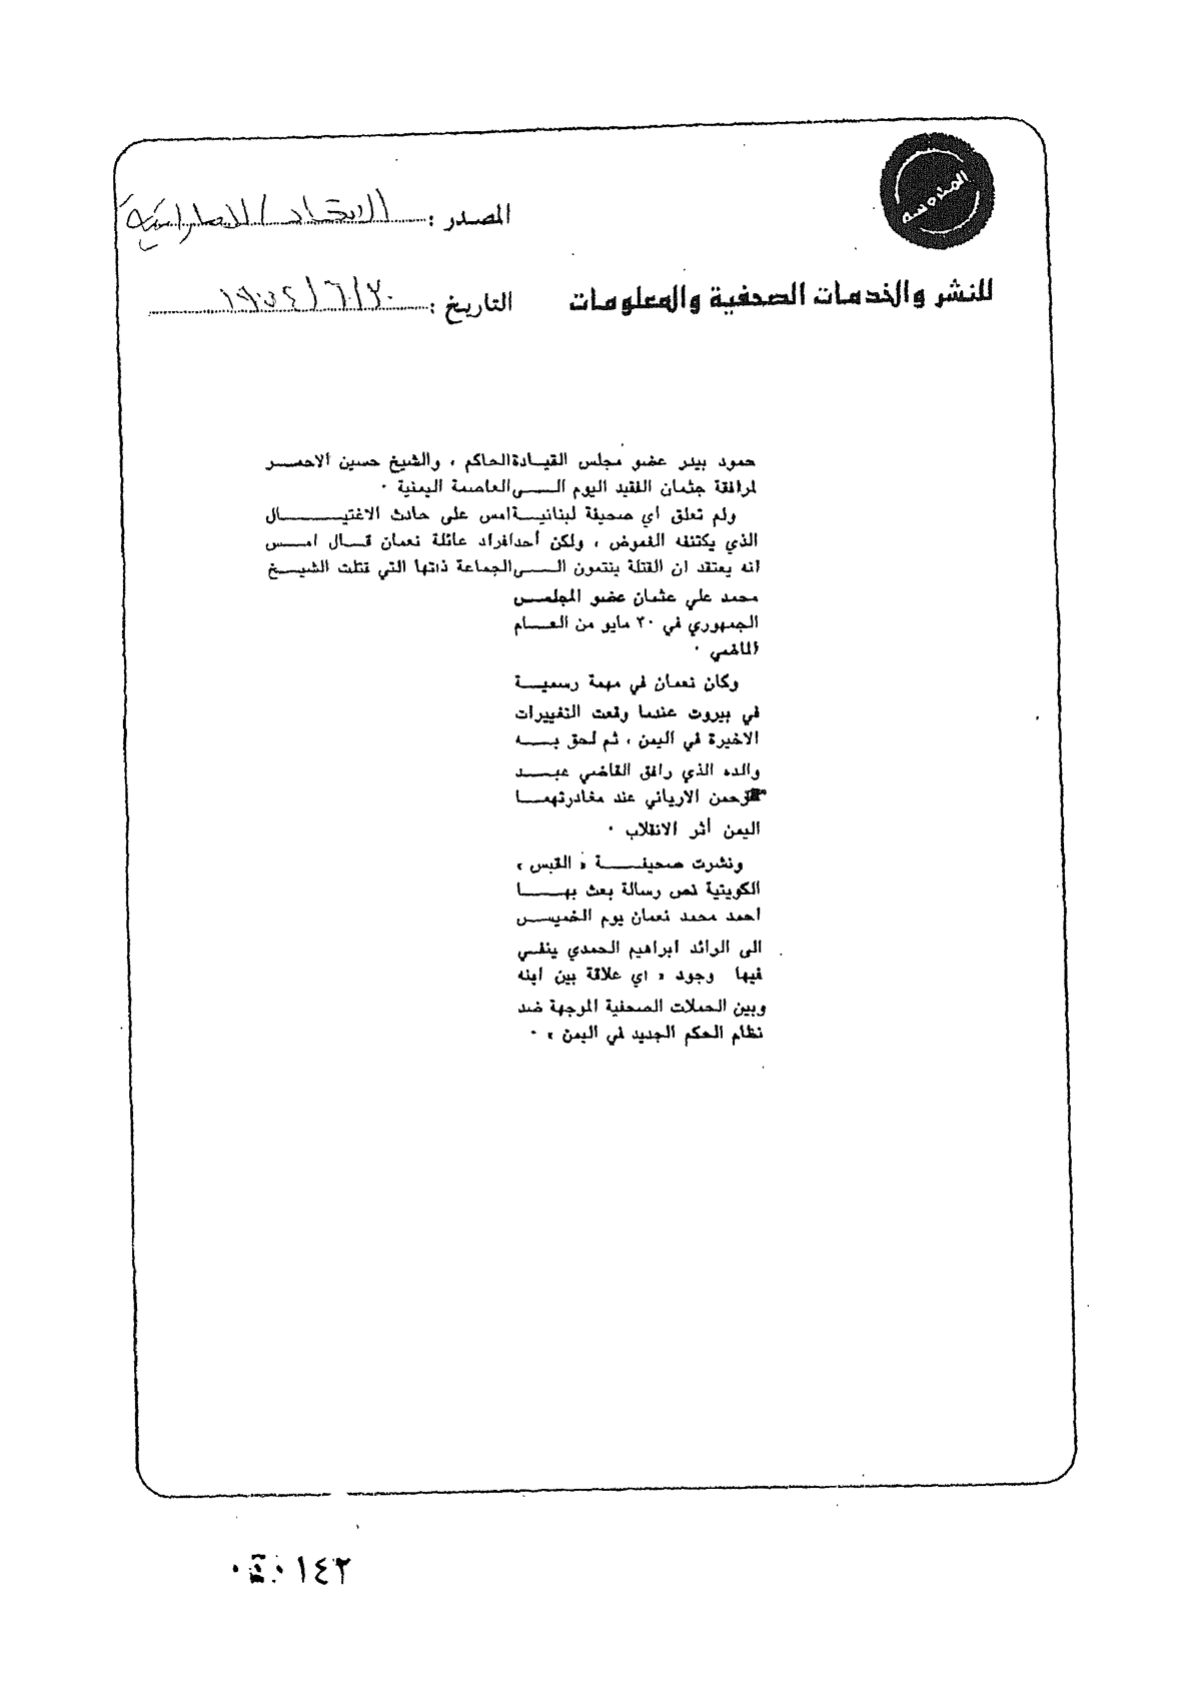 المحروسة
للنشر والخدمات الصحفية والمعلومات
المصدر : الاتحاد / الاماراتية
التاريخ : ٢٠/٦/١٩٧٤
حمود بيدر عضو مجلس القيادة الحاكم ، والشيخ حسين الاحمر
لمرافقة جثمان الفقيد اليوم الى العاصمة اليمنية ٠
ولم تعلق اي صحيفة لبنانية امس على حادث الاغتيال
الذي يكتنفه الغموض ، ولكن أحد افراد عائلة نعمان قال امس
انه يعتقد ان القتلة ينتمون الى الجماعة ذاتها التي قتلت الشيخ
محمد علي عثمان عضو المجلس
الجمهوري في ٣٠ مايو من العام
الماضي ٠
وكان نعمان في مهمة رسمية
في بيروت عندما وقعت التغييرات
الاخيرة في اليمن ، ثم لحق به
والده الذي رافق القاضي عبد
الرحمن الارياني عند مغادرتهما
اليمن أثر الانقلاب ٠
ونشرت صحيفة « القبس »
الكويتية نص رسالة بعث بها
احمد محمد نعمان يوم الخميس
الى الرائد ابراهيم الحمدي ينفي
فيها وجود « اي علاقة بين ابنه
وبين الحملات الصحفية الموجهة ضد
نظام الحكم الجديد في اليمن » ٠
٠١٤٢